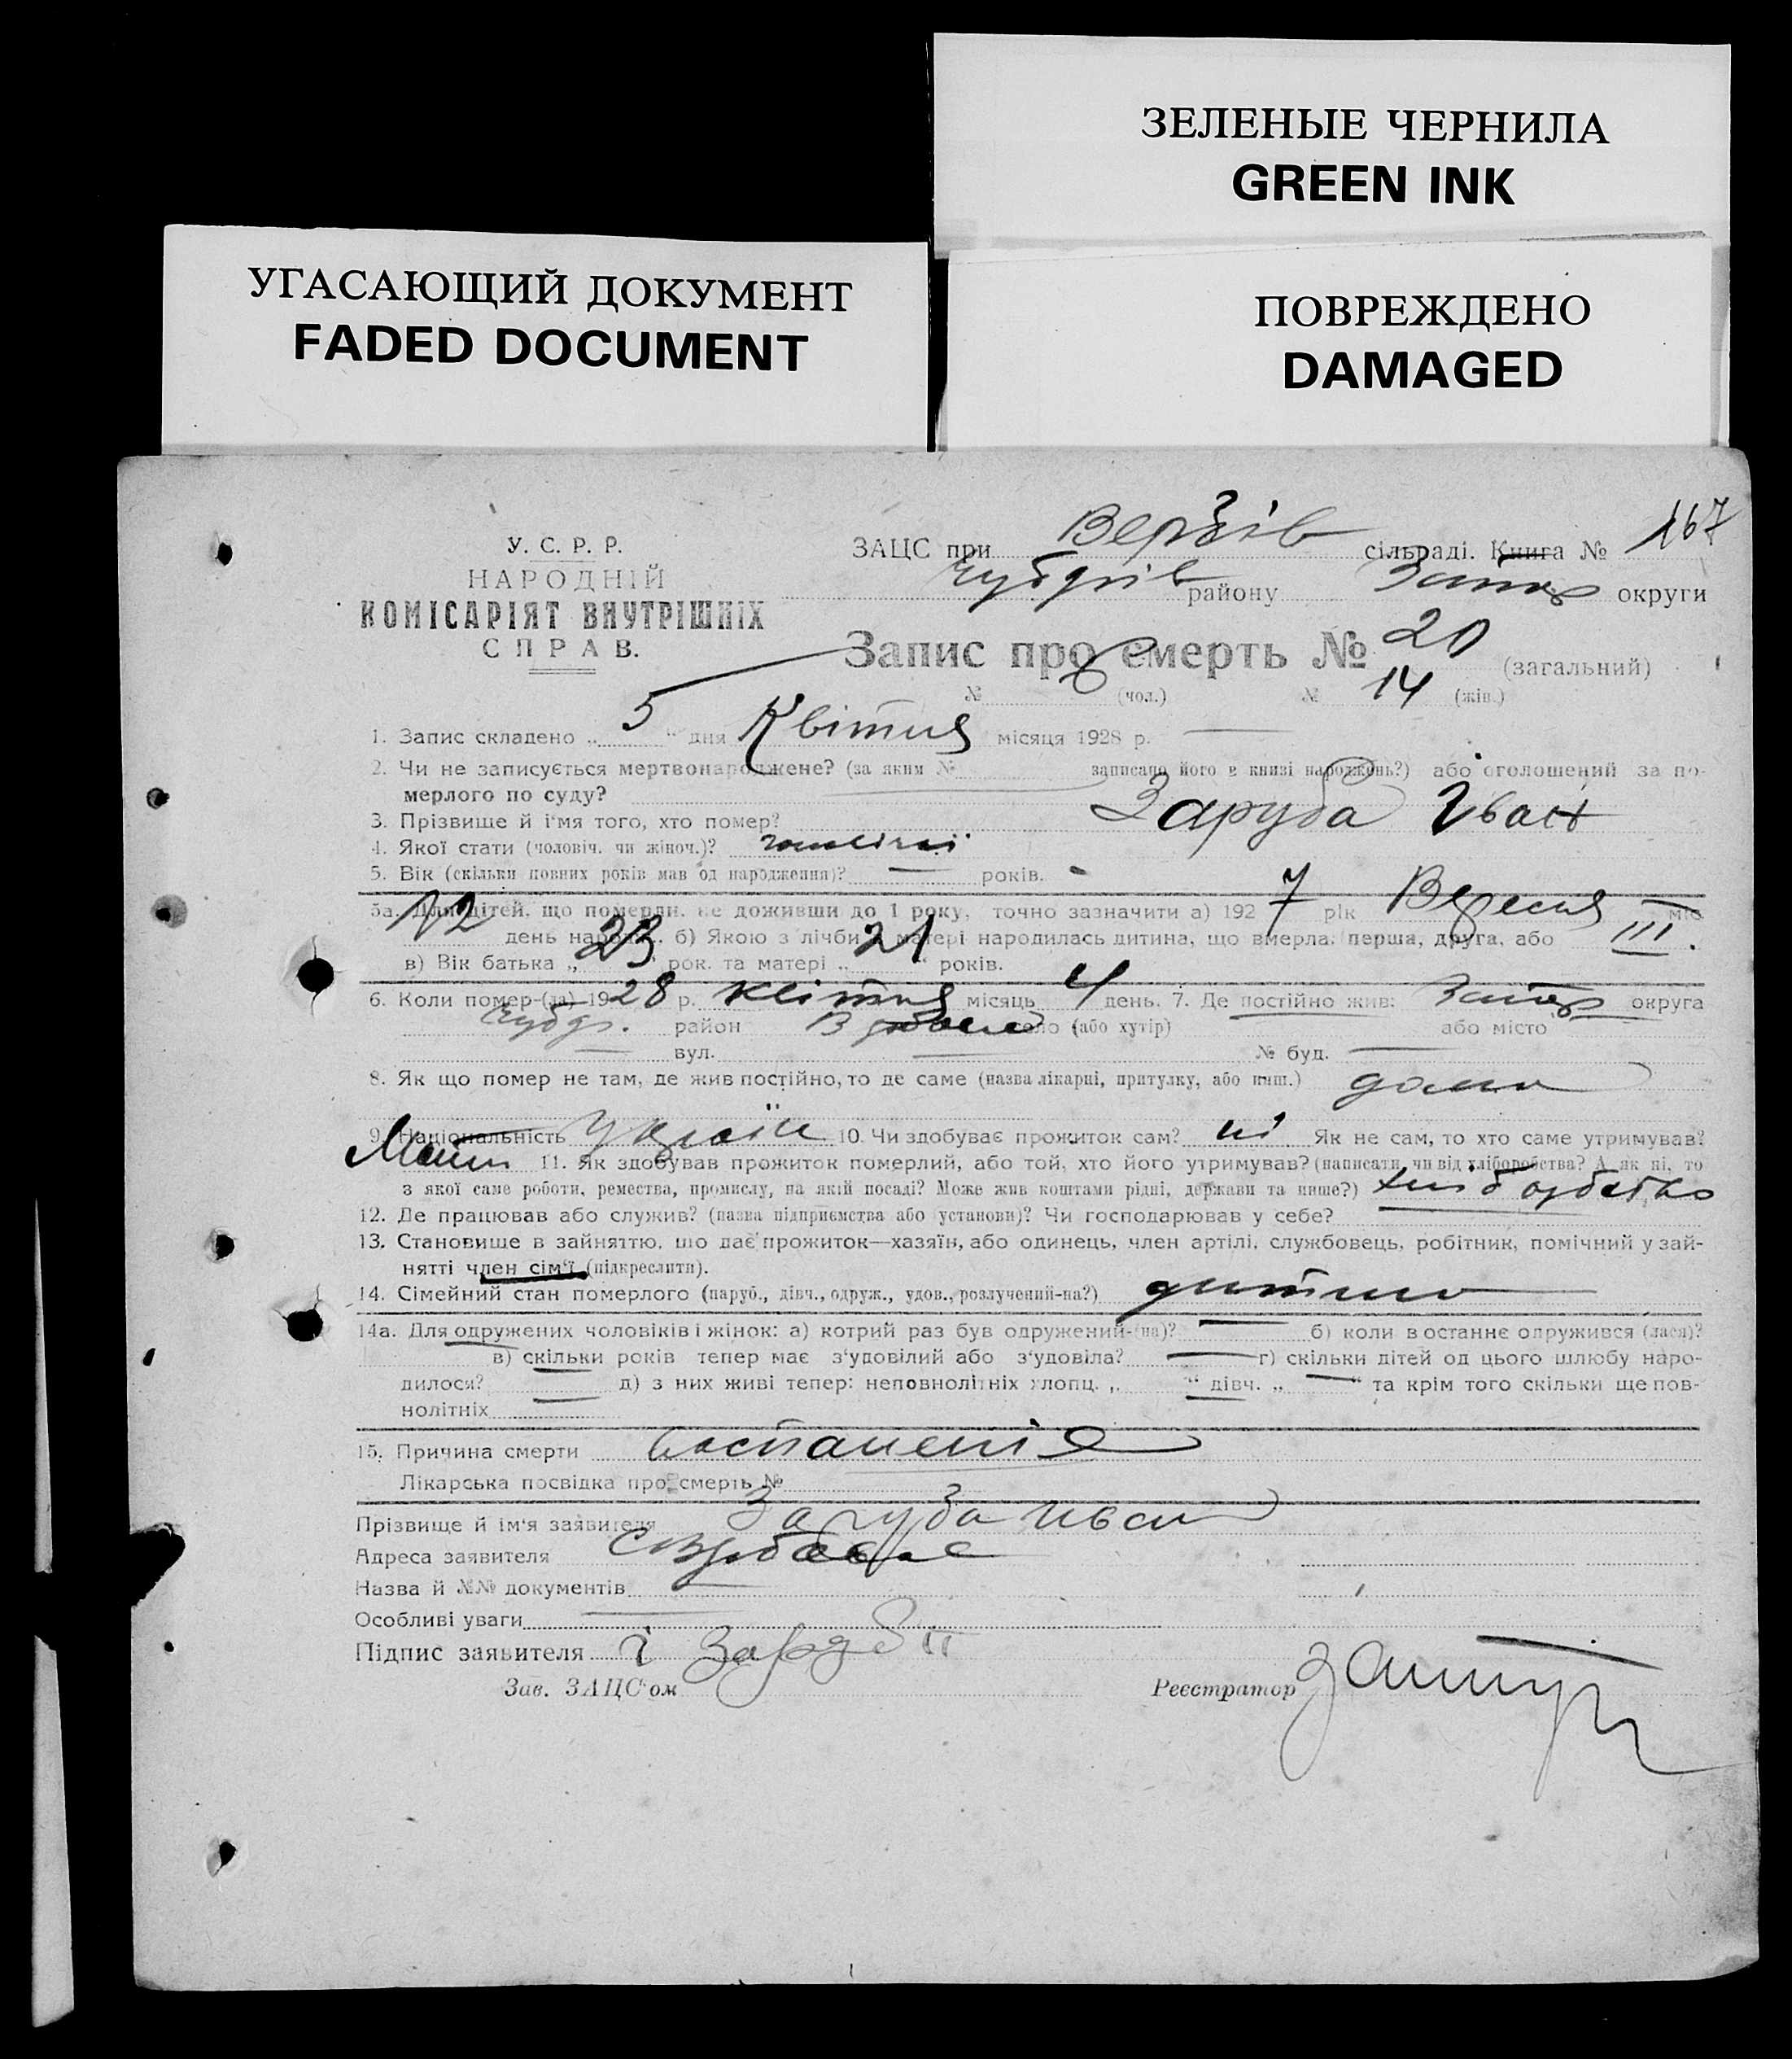 ЗЕЛЕНЫЕ ЧЕРНИЛА
GREEN INK
УГАСАЮЩИЙ ДОКУМЕНТ
FADED DOCUMENT
ПОВРЕЖДЕНО
DAMAGED
У. С. Р. Р.
НАРОДНІЙ
КОМІСАРІЯТ ВНУТРІШНІХ
СПРАВ.
ЗАЦС при сільраді. Книга № 167
району Запор округи
Запис про смерть № 20 (загальний)
№ (чол.) № 14 (жін.)
1. Запис складено „ 5 “ дня Квітня місяця 1928 р.
2. Чи не записується мертвонароджене? (за яким № записано його в книзі народжень?) або оголошений за по-
мерлого по суду?
3. Прізвище й ім'я того, хто помер? Заруба Іван
4. Якої стати (чоловіч. чи жіноч.)?
5. Вік (скільки повних років мав од народження)? — років.
5а. Для дітей, що померли, не доживши до 1 року, точно зазначити а) 1927 рік Вересня міс
12 день народж. б) Якою з лічби у матері народилась дитина, що вмерла, перша, друга, або III.
в) Вік батька „ 23 “ рок. та матері „ 21 “ років.
6. Коли помер-(ла) 1928 р. квітня місяць 4 день. 7. Де постійно жив: Запор округа
район село (або хутір) або місто
вул. № буд.
8. Як що помер не там, де жив постійно, то де саме (назва лікарні, притулку, або инш.) дома
9. Національність Україн 10. Чи здобуває прожиток сам? ні Як не сам, то хто саме утримував?
11. Як здобував прожиток померлий, або той, хто його утримував? (написати, чи від хліборобства? А як ні, то
з якої саме роботи, ремества, промислу, на якій посаді? Може жив коштами рідні, держави та инше?) хліборобство
12. Де працював або служив? (назва підприємства або установи)? Чи господарював у себе?
13. Становище в зайняттю, що дає прожиток—хазяїн, або одинець, член артілі, службовець, робітник, помічний у зай-
нятті член сім'ї (підкреслити).
14. Сімейний стан померлого (паруб., дівч., одруж., удов., розлучений-на?) дитина
14а. Для одружених чоловіків і жінок: а) котрий раз був одружений-(на)? б) коли в останнє одружився (лася)?
в) скільки років тепер має з'удовілий або з'удовіла? г) скільки дітей од цього шлюбу наро-
дилося? д) з них живі тепер: неповнолітніх хлопц. „ “ дівч. „ “ та крім того скільки ще пов-
нолітніх
15. Причина смерти воспаленія
Лікарська посвідка про смерть №
Прізвище й ім'я заявителя Заруба Иван
Адреса заявителя
Назва й №№ документів
Особливі уваги
Підпис заявителя І Заруба
Зав. ЗАЦС'ом Реєстратор